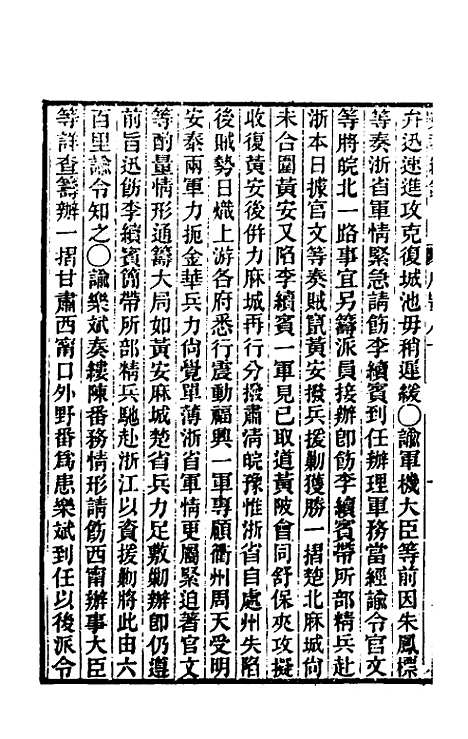 弁迅速進攻克復城池毋稍遲緩○諭軍機大臣等前因朱鳳標
等奏浙省軍情緊急請飭李續賓到任辦理軍務當經諭令官文
等將皖北一路事宜另籌派員接辦卽飭李續賓帶所部精兵赴
浙本日據官文等奏賊竄黃安撥兵援勦獲勝一摺楚北麻城尙
未合圍黃安又陷李續賓一軍見已取道黃陂會同舒保夾攻擬
收復黃安後併力麻城再行分撥肅清皖豫惟浙省自處州失陷
後賊勢日熾上游各府悉行震動福興一軍專顧衢州周天受明
安泰兩軍力扼金華兵力尙覺單薄浙省軍情更屬緊迫著官文
等酌量情形通籌大局如黃安麻城楚省兵力足敷勦辦卽仍遵
前旨迅飭李續賓簡帶所部精兵馳赴浙江以資援勦將此由六
百里諭令知之○諭樂斌奏縷陳番務情形請飭西甯辦事大臣
等詳查籌辦一摺甘肅西甯口外野番爲患樂斌到任以後派令